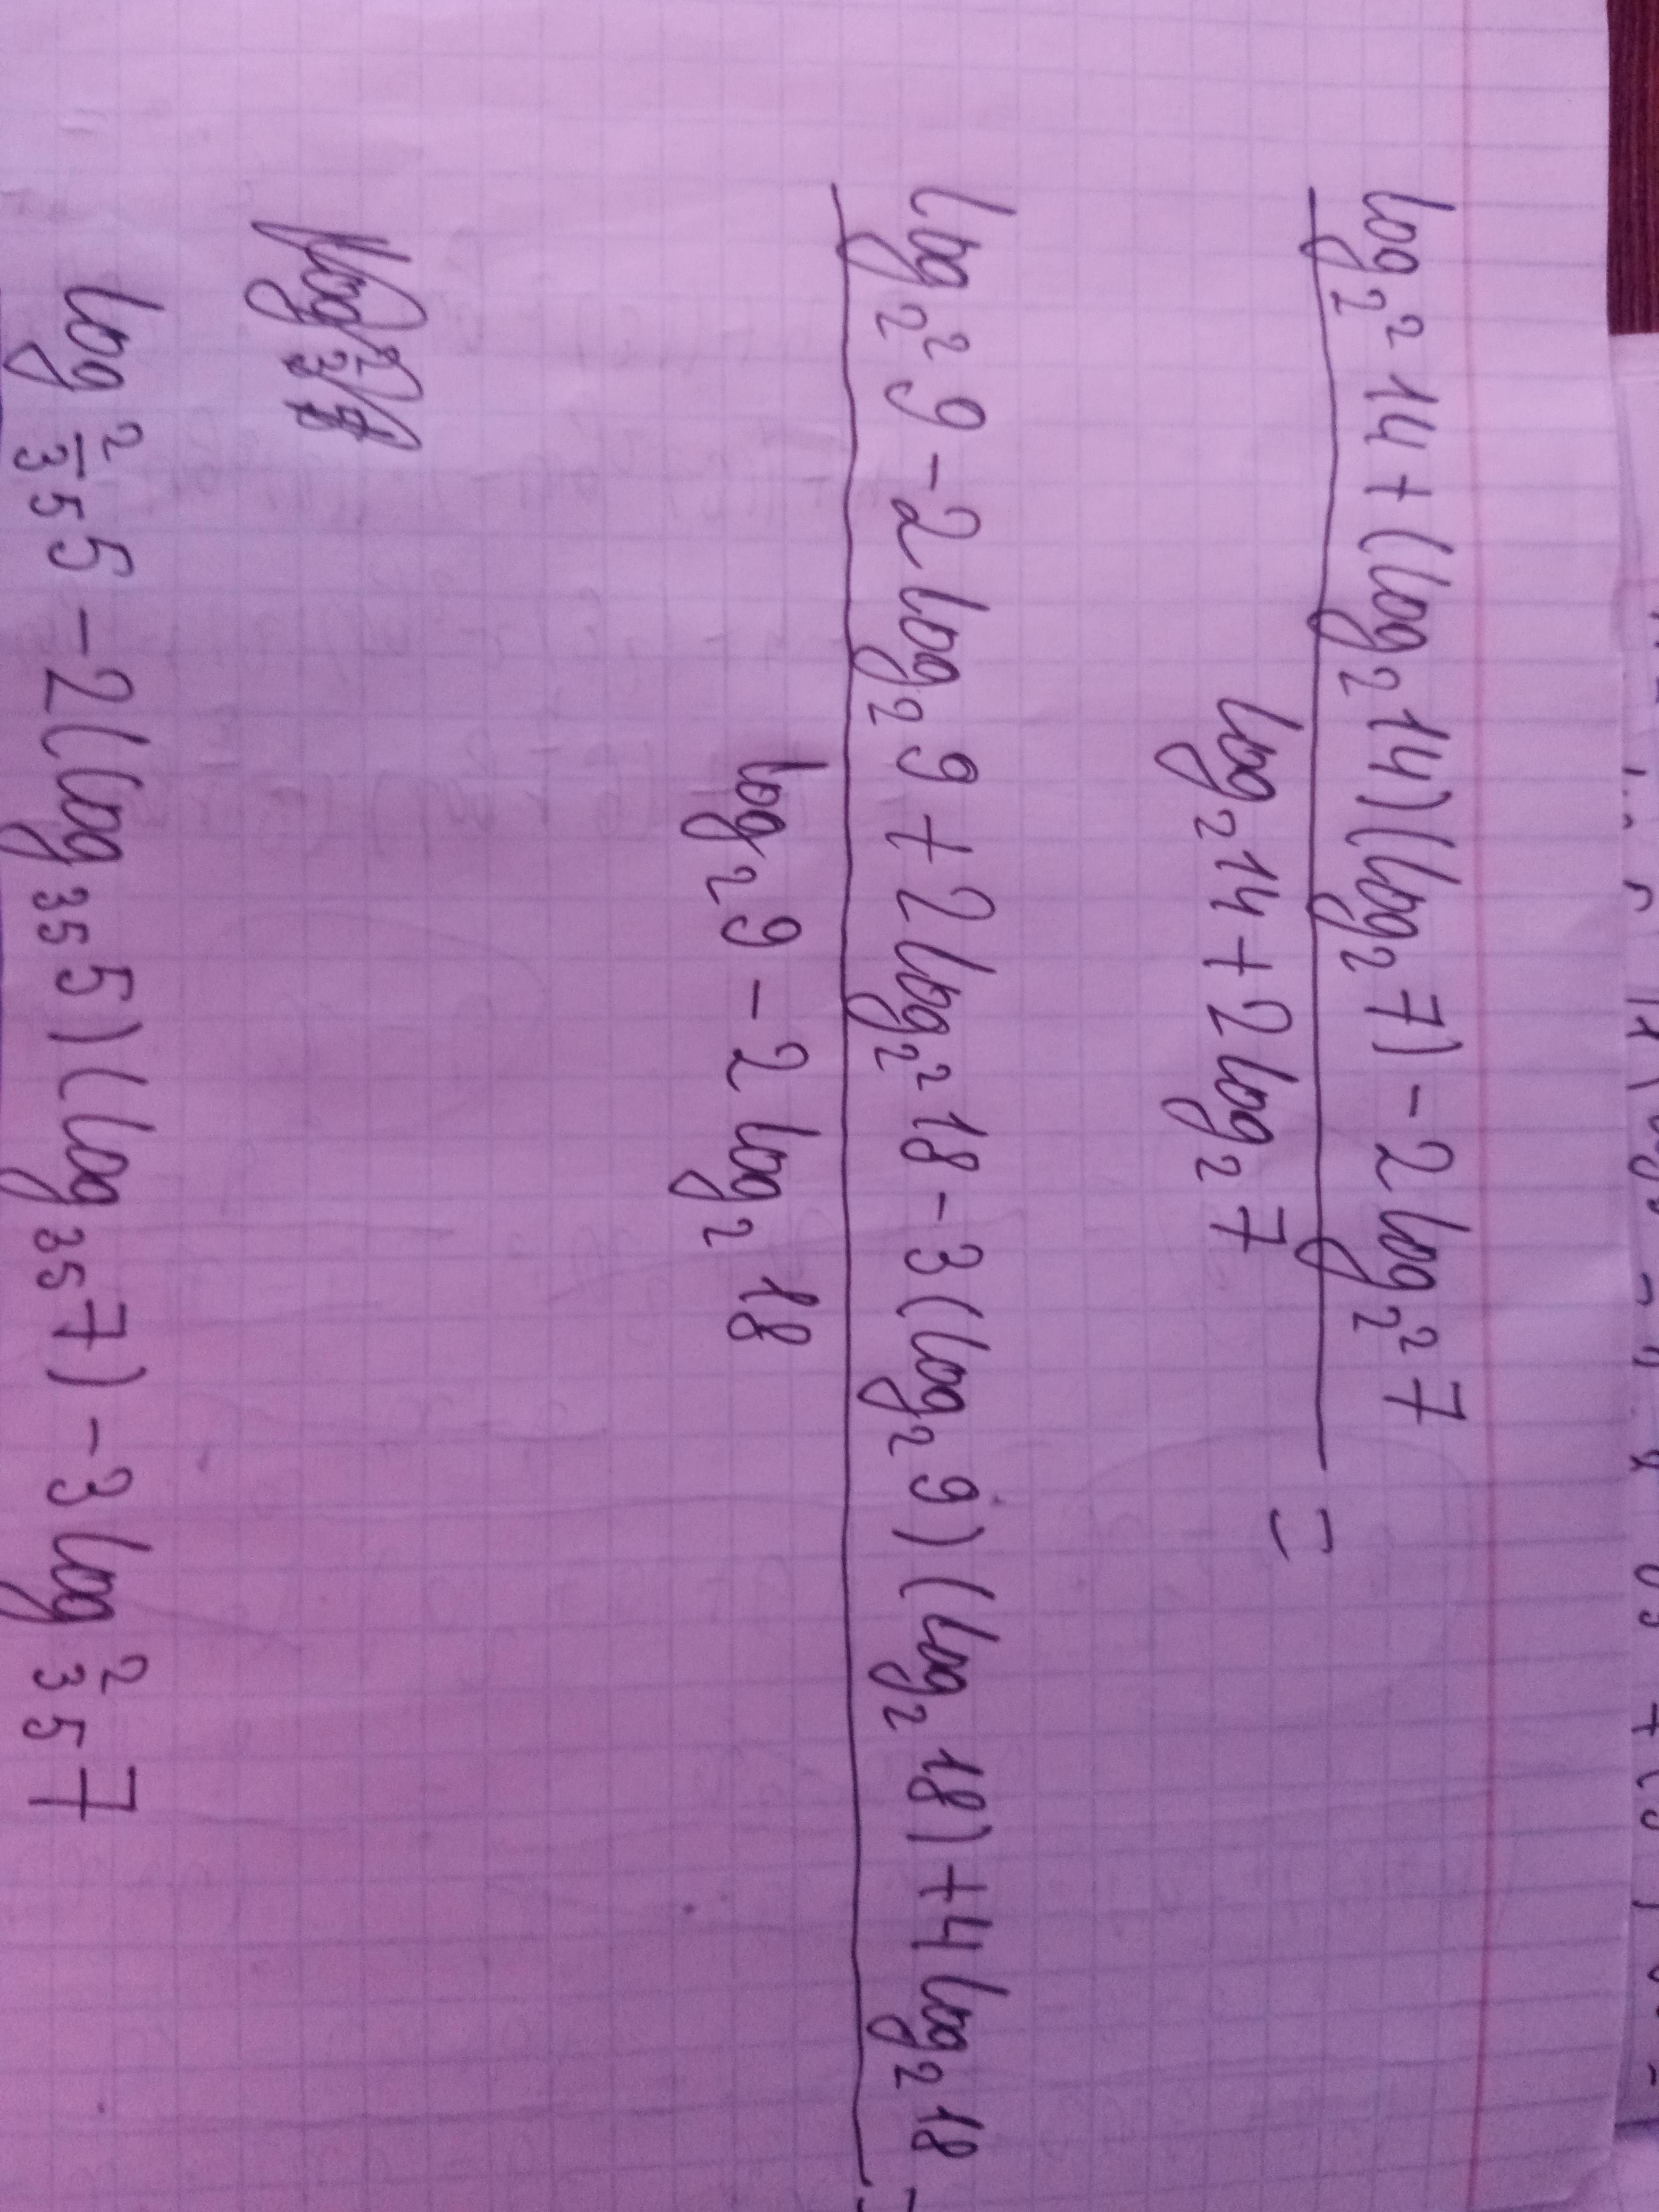 log₂²14 + (log₂14)(log₂7) - 2log₂²7
=
log₂14 + 2log₂7
log₂²9 - 2log₂9 + 2log₂²18 - 3(log₂9)(log₂18) + 4log₂18
log₂9 - 2log₂18
log²₃₅5 - 2(log₃₅5)(log₃₅7) - 3log²₃₅7